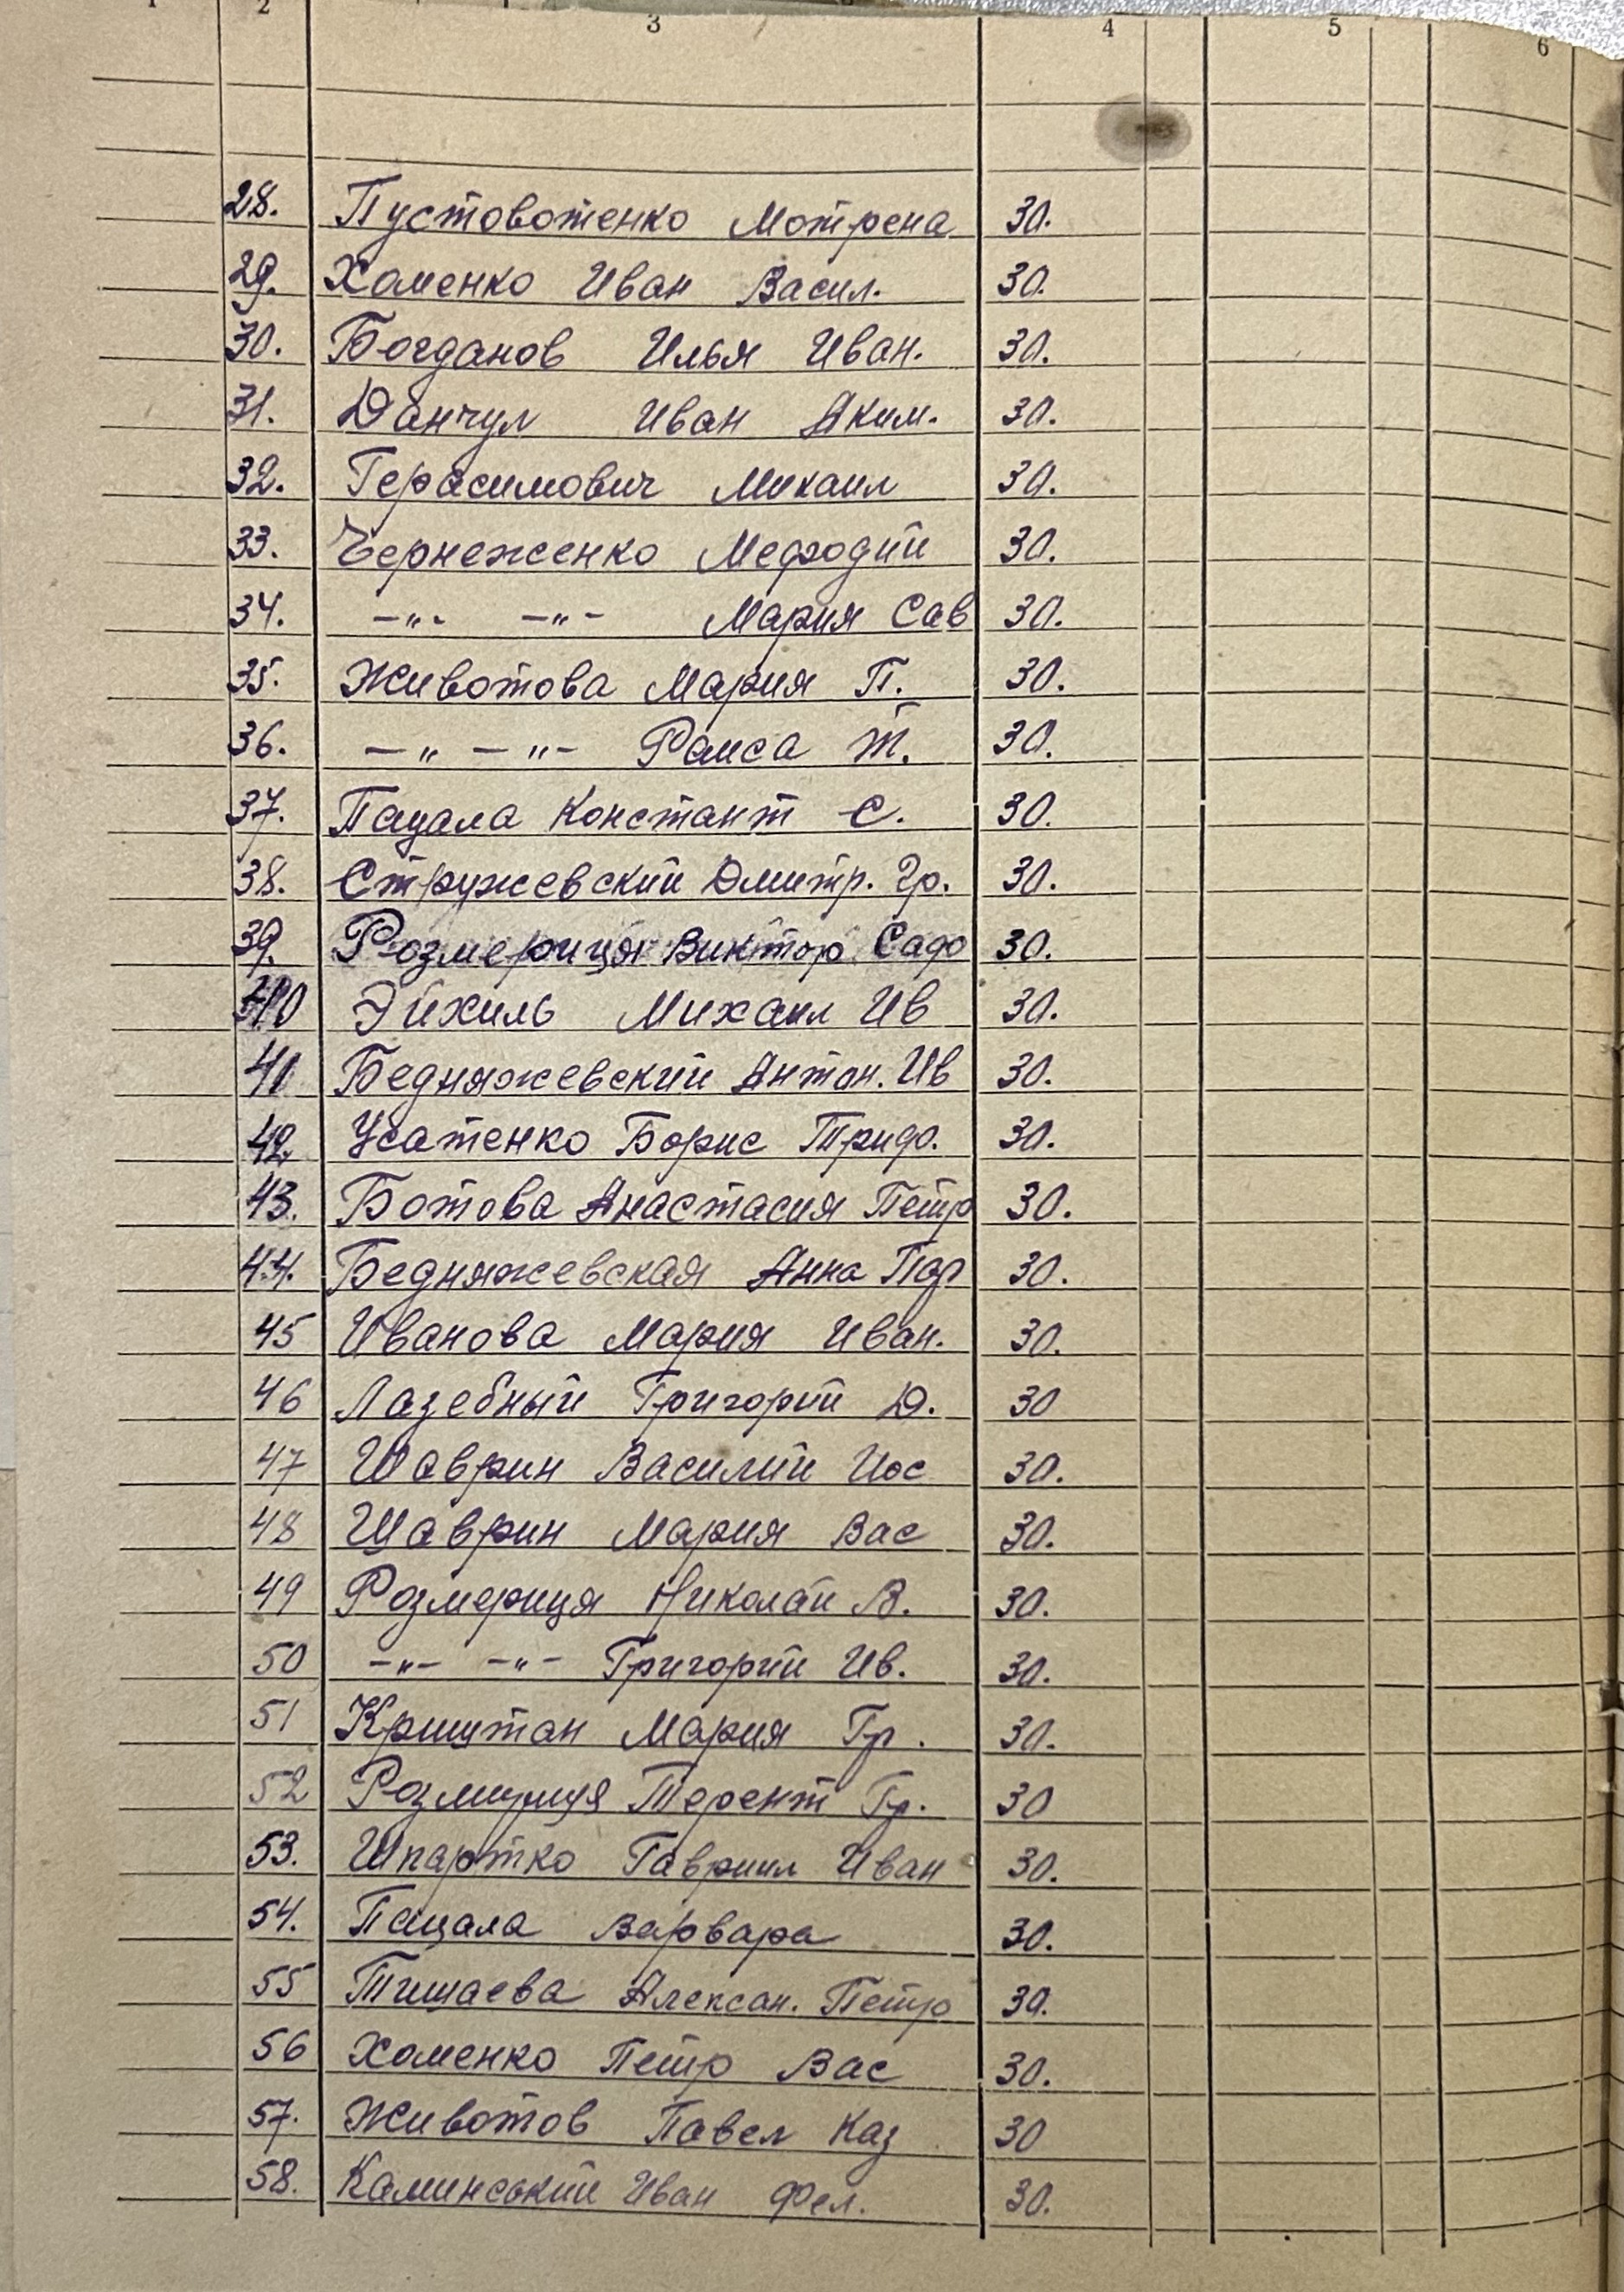 1 2 3 4 5 6
28. Пустовотенко Мотрена 30.
29. Хоменко Иван Васил. 30.
30. Богданов Илья Иван. 30.
31. Данчул Иван Аким. 30.
32. Герасимович Михаил 30.
33. Чернеженко Мефодий 30.
34. -„- -„- Мария Сав 30.
35. Животова Мария П. 30.
36. -„-„- Раиса Т. 30.
37. Пацала Констант С. 30.
38. Стружевский Дмитр. Гр. 30.
39. Розмериця Виктор Сафо 30.
40 Эйхиль Михаил Ив 30.
41 Бедняжевский Антон. Ив 30.
42. Усатенко Борис Трифо. 30.
43. Ботова Анастасия Петр 30.
44. Бедняжевская Анна Пор 30.
45 Иванова Мария Иван. 30.
46 Лазебный Григорий Д. 30
47 Шаврин Василий Иос 30.
48 Шаврин Мария Вас 30.
49 Розмериця Николай В. 30.
50 -„- -„- Григорий Ив. 30.
51 Криштан Мария Гр. 30.
52 Терент Гр. 30
53. Шпартко Гавриил Иван 30.
54. Пацала Варвара 30.
55 Тишаева Алексан. Петр 30.
56 Хоменко Петр Вас 30.
57. Животов Павел Каз 30
58. Каминський Иван Фел. 30.